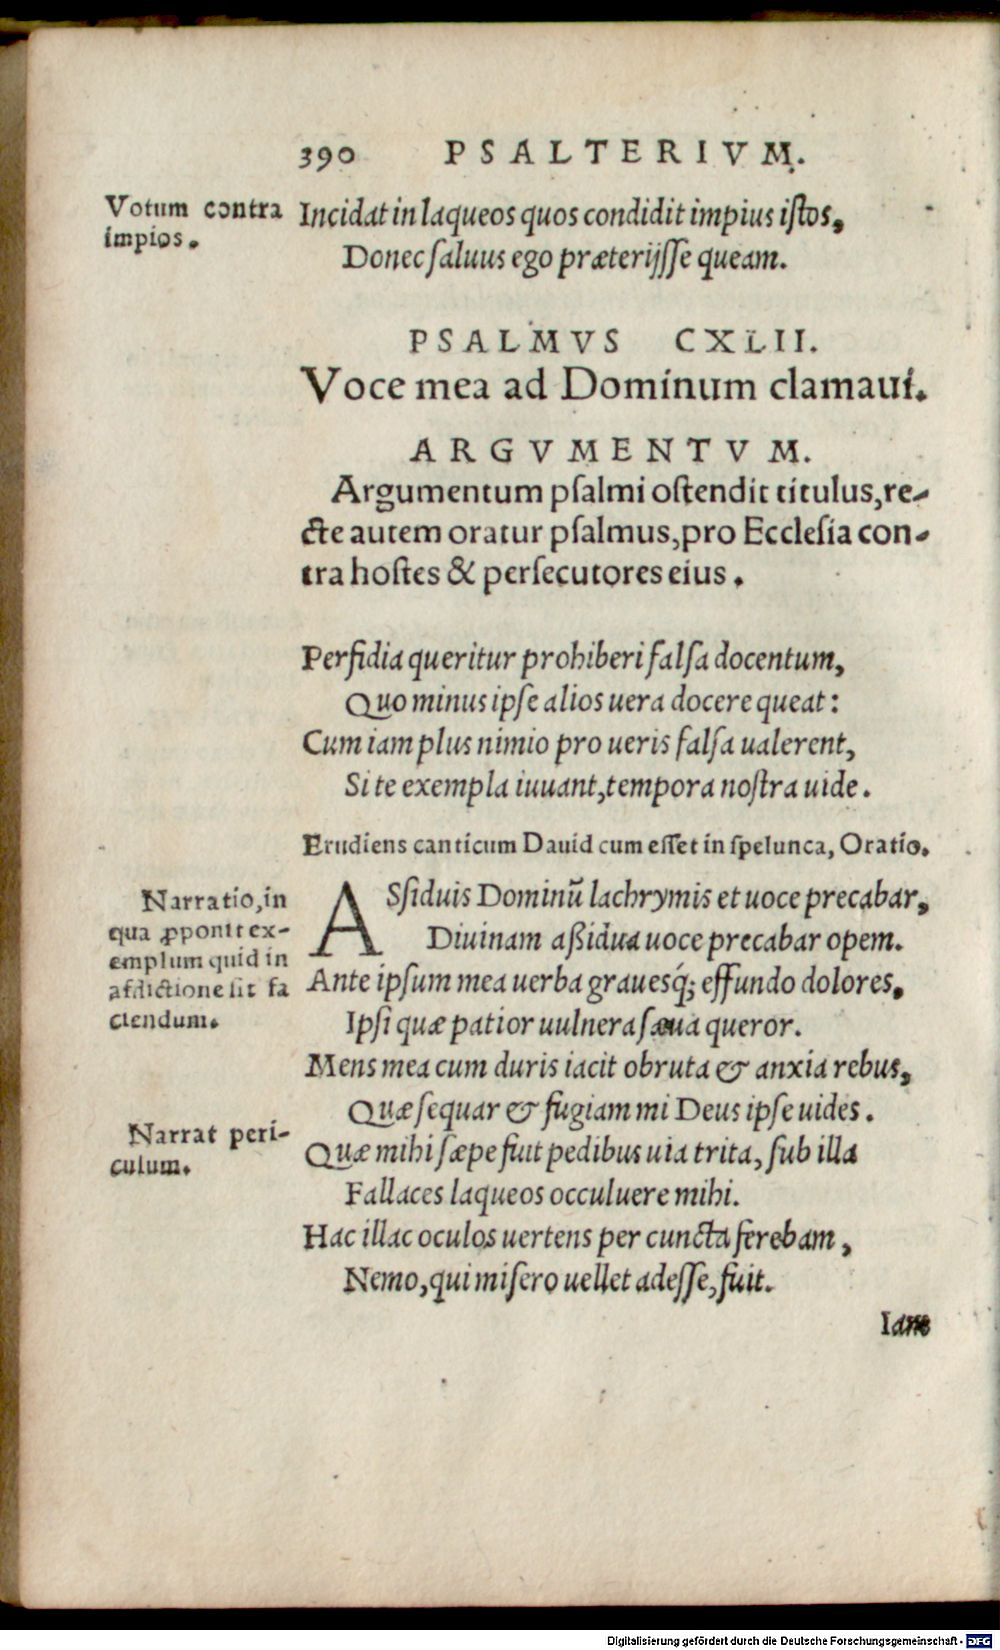 390 PSALTERIVM.
Votum contra
impios.
Incidat in laqueos quos condidit impius iſtos,
Donec ſaluus ego præterijſſe queam.
PSALMVS CXLII.
Voce mea ad Dominum clamaui.
ARGVMENTVM.
Argumentum pſalmi oſtendit titulus, re-
cte autem oratur pſalmus, pro Eccleſia con-
tra hoſtes & perſecutores eius.
Perfidia queritur prohiberi falſa docentum,
Quo minus ipſe alios uera docere queat:
Cum iam plus nimio pro ueris falſa ualerent,
Si te exempla iuuant, tempora noſtra uide.
Erudiens canticum Dauid cum eſſet in ſpelunca, Oratio.
Narratio, in
qua ꝓponit ex-
emplum quid in
afdictione ſit fa
ciendum.
ASſiduis Dominū lachrymis et uoce precabar,
Diuinam aßidua uoce precabar opem.
Ante ipſum mea uerba grauesq́; effundo dolores,
Ipſi quæ patior uulnera ſæua queror.
Mens mea cum duris iacit obruta & anxia rebus,
Quæ ſequar & fugiam mi Deus ipſe uides.
Narrat peri-
culum.
Quæ mihi ſæpe fuit pedibus uia trita, ſub illa
Fallaces laqueos occuluere mihi.
Hac illac oculos uertens per cuncta ferebam,
Nemo, qui miſero uellet adeſſe, fuit.
Iam
Digitalisierung gefördert durch die Deutsche Forschungsgemeinschaft - DFG